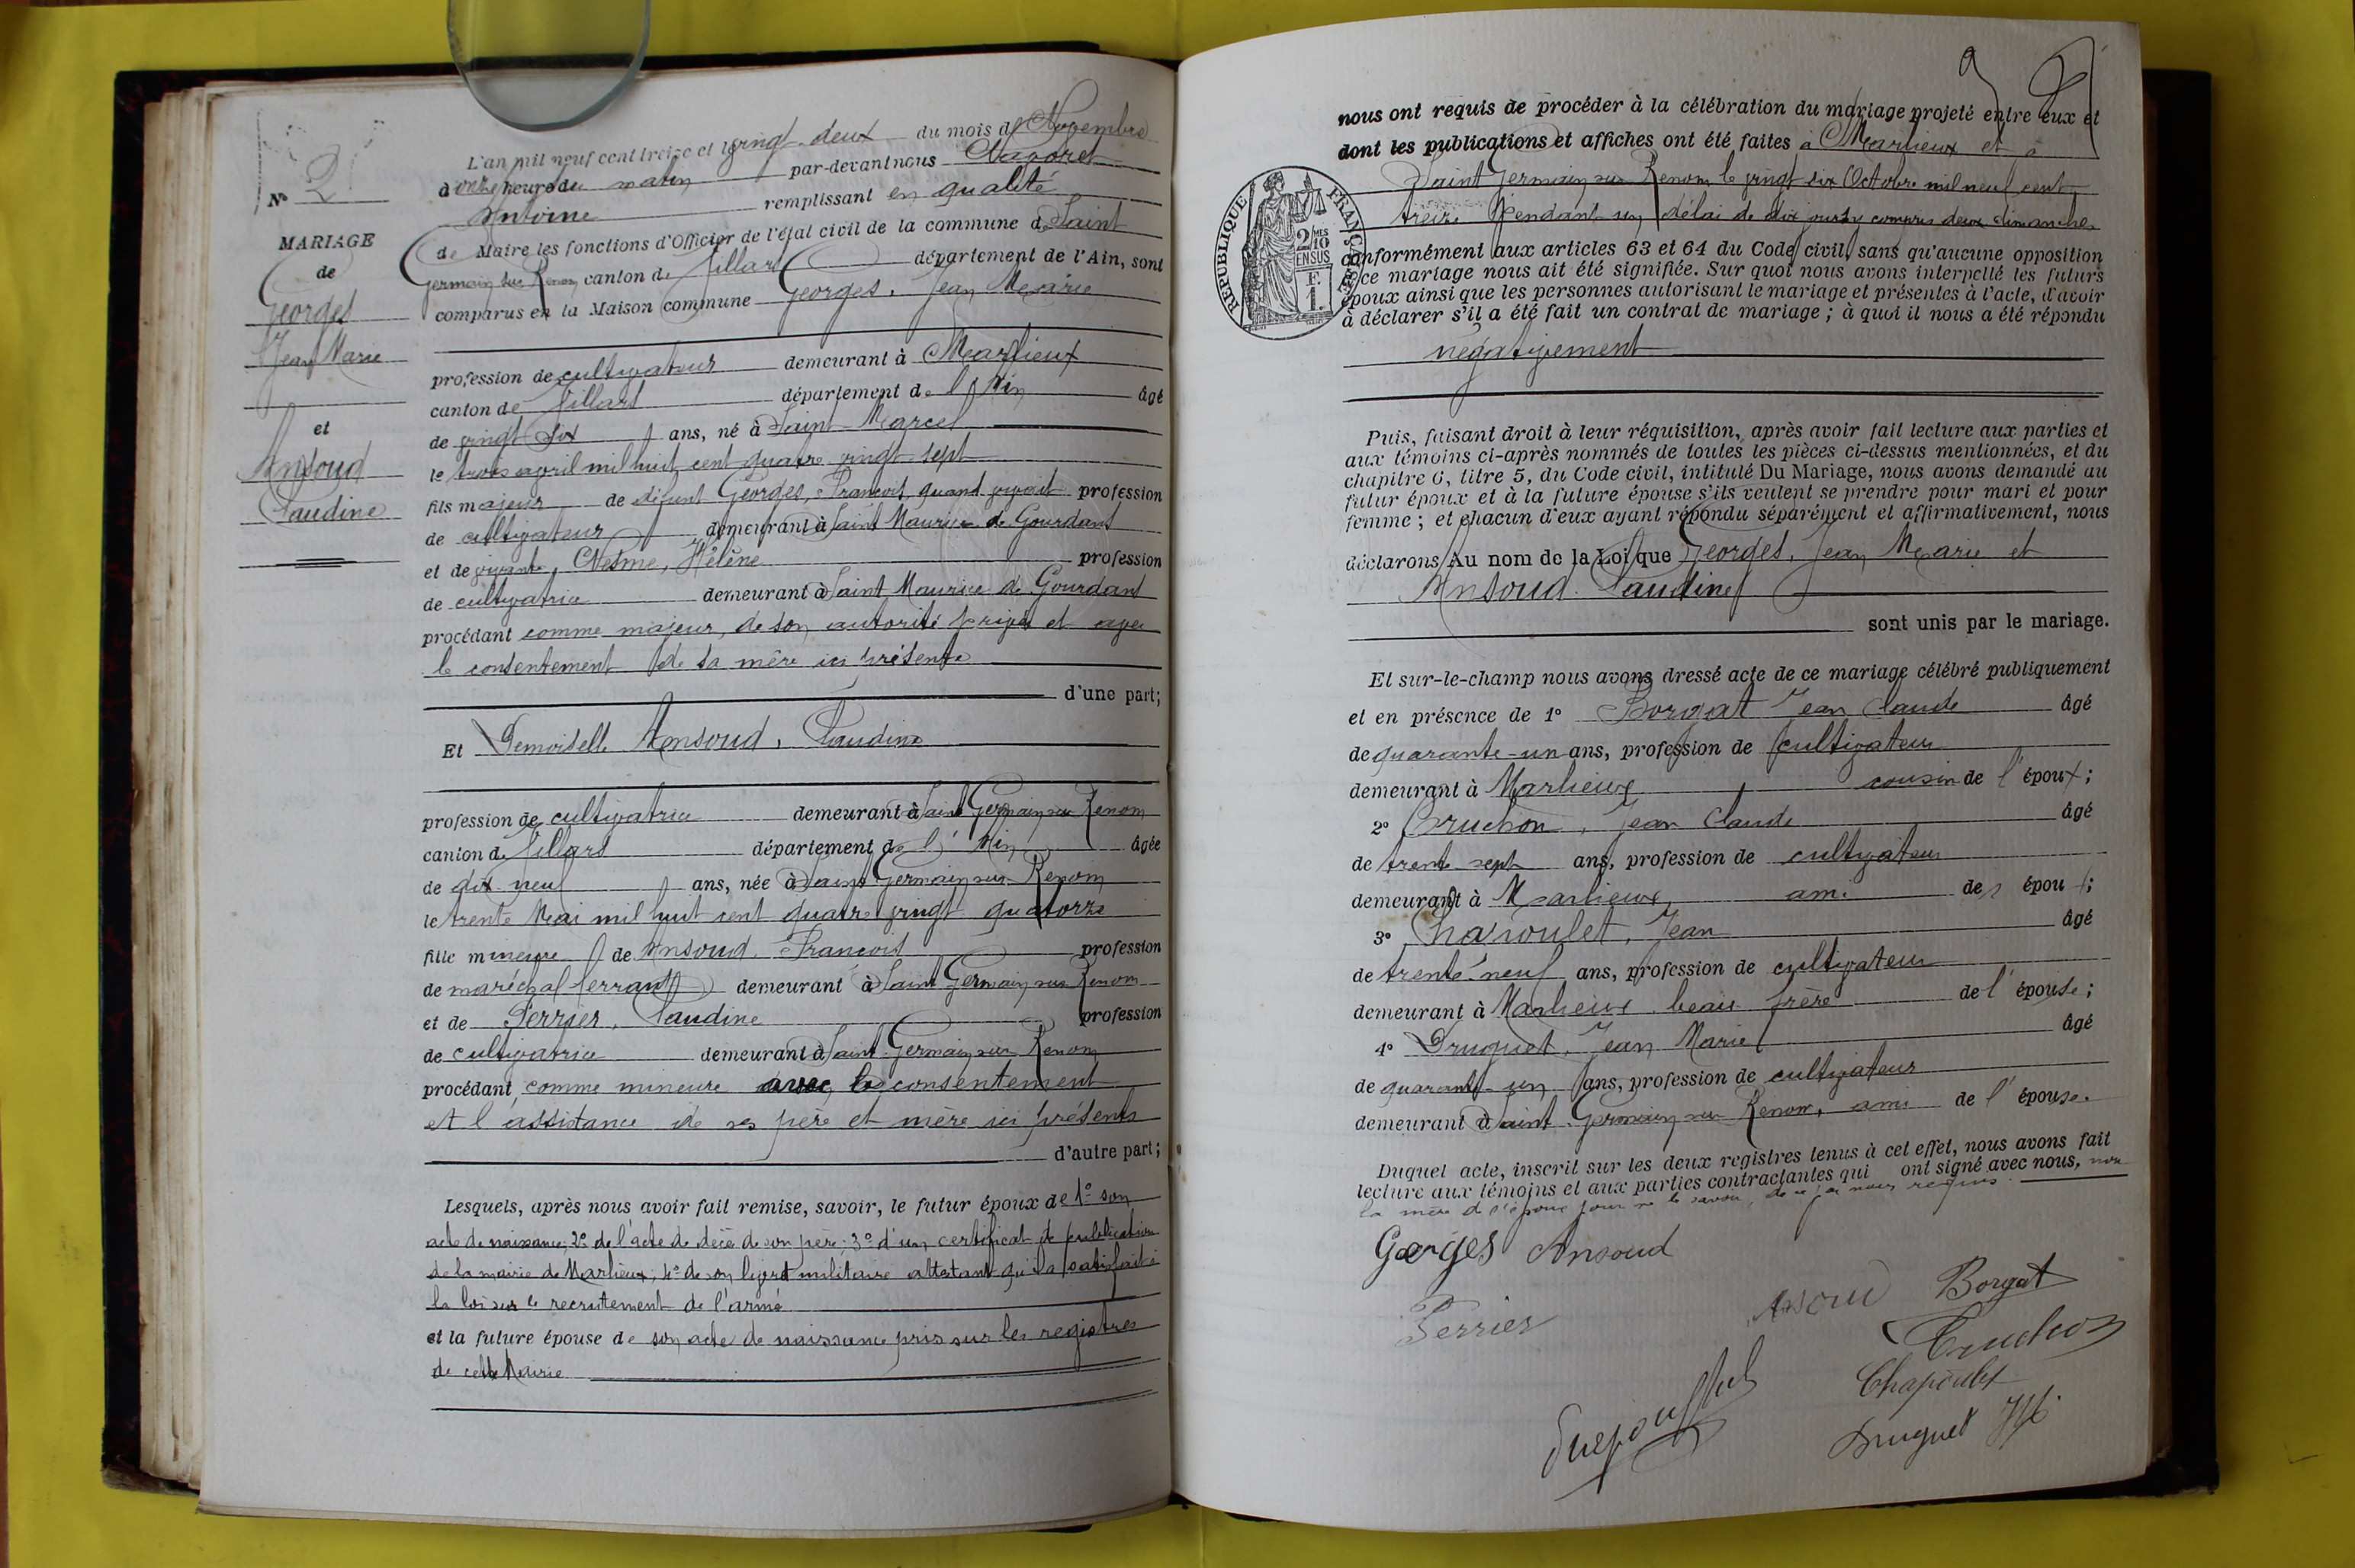 L'an mil neuf cent treize et vingt-deux du mois de Novembre
à onze heures du matin par-devant nous
Antoine remplissant en qualité
de Maire les fonctions d'Officier de l'état civil de la commune de Saint
Germain sur Renom canton de Villars département de l'Ain, sont
comparus en la Maison commune Georges, Jean Marie
profession de cultivateur demeurant à Marlieux
canton de Villars département de l'Ain âgé
de vingt six ans, né à Saint Marcel
le trois avril mil huit cent quatre vingt sept
fils majeur de défunt Georges, François, quand vivait profession
de cultivateur demeurant à Saint Maurice de Gourdans
et de vivante, Nesme, Hélène profession
de cultivatrice demeurant à Saint Maurice de Gourdans
procédant comme majeur, de son autorité privée et avec
le consentement de sa mère ici présente
d'une part;
Et Demoiselle Ansoud, Claudine
profession de cultivatrice demeurant à Saint Germain sur Renom
canton de Villars département de l'Ain âgée
de dix neuf ans, née à Saint Germain sur Renom
le trente Mai mil huit cent quatre vingt quatorze
fille mineure de Ansoud François profession
de maréchal ferrant demeurant à Saint Germain sur Renom
et de Perrier, Claudine profession
de cultivatrice demeurant à Saint Germain sur Renom
procédant comme mineure avec le consentement
et l'assistance de ses père et mère ici présents
d'autre part;
Lesquels, après nous avoir fait remise, savoir, le futur époux de 1º son
acte de naissance; 2º de l'acte de décès de son père; 3º d'un certificat de publication
de la mairie de Marlieux; 4º de son livret militaire attestant qu'il a satisfait à
la loi sur le recrutement de l'armé
et la future épouse de son acte de naissance pris sur les registres
de cette Mairie
Nº 2
MARIAGE
de
Georges
Jean Marie
et
Ansoud
Claudine
nous ont requis de procéder à la célébration du mariage projeté entre eux et
dont les publications et affiches ont été faites à Marlieux et à
Saint Germain sur Renom le vingt six Octobre mil neuf cent
treize pendant un délai de dix jours y compris deux dimanches
conformément aux articles 63 et 64 du Code civil, sans qu'aucune opposition
à ce mariage nous ait été signifiée. Sur quoi nous avons interpellé les futurs
époux ainsi que les personnes autorisant le mariage et présentes à l'acte, d'avoir
à déclarer s'il a été fait un contrat de mariage; à quoi il nous a été répondu
négativement
RÉPUBLIQUE FRANÇAISE
2/10 MES
EN SUS
F.
1.
Puis, faisant droit à leur réquisition, après avoir fait lecture aux parties et
aux témoins ci-après nommés de toutes les pièces ci-dessus mentionnées, et du
chapitre 6, titre 5, du Code civil, intitulé Du Mariage, nous avons demandé au
futur époux et à la future épouse s'ils veulent se prendre pour mari et pour
femme; et chacun d'eux ayant répondu séparément et affirmativement, nous
déclarons Au nom de la Loi que Georges, Jean Marie et
Ansoud Claudine
sont unis par le mariage.
Et sur-le-champ nous avons dressé acte de ce mariage célébré publiquement
et en présence de 1º Borgat Jean Claude âgé
de quarante-un ans, profession de cultivateur
demeurant à Marlieux cousin de l'époux;
2º Cruchon, Jean Claude âgé
de trente sept ans, profession de cultivateur
demeurant à Marlieux, ami de l'époux;
3º Chapoulet, Jean âgé
de trente-neuf ans, profession de cultivateur
demeurant à Marlieux beau frère de l'épouse;
4º Druguet, Jean Marie âgé
de quarante-un ans, profession de cultivateur
demeurant à Saint Germain sur Renom, ami de l'épouse.
Duquel acte, inscrit sur les deux registres tenus à cet effet, nous avons fait
lecture aux témoins et aux parties contractantes qui ont signé avec nous, non
la mère de l'époux pour ne le savoir, de ce par nous requis.
Georges Ansoud
Perrier Ansoud Borgat
Cruchon
Chapoulet
Druguet JM